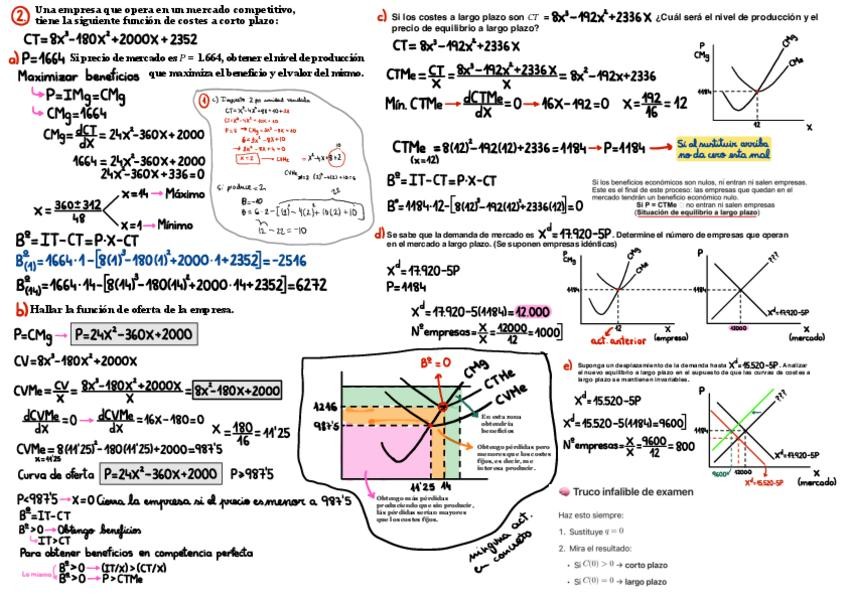 2. Una empresa que opera en un mercado competitivo,
tiene la siguiente función de costes a corto plazo:
CT=8x³-180x²+2000x+2352
a) P=1664 Si precio de mercado es P = 1.664, obtener el nivel de producción
que maximiza el beneficio y el valor del mismo.
Maximizar beneficios
P=IMg=CMg
CMg=1664
CMg=dCT/dx=24x²-360x+2000
1664=24x²-360x+2000
24x²-360x+336=0
x=360±312/48
x=14→Máximo
x=1→Mínimo
Bº=IT-CT=P·x-CT
Bº(1)=1664·1-[8(1)³-180(1)²+2000·1+2352]=-2516
Bº(14)=1664·14-[8(14)³-180(14)²+2000·14+2352]=6272
b) Hallar la función de oferta de la empresa.
P=CMg→P=24x²-360x+2000
CV=8x³-180x²+2000x
CVMe=CV/x=8x³-180x²+2000x/x=8x²-180x+2000
dCVMe/dx=0→dCVMe/dx=16x-180=0 x=180/16=11'25
CVMe=8(11'25)²-180(11'25)+2000=987'5
x=11'25
Curva de oferta P=24x²-360x+2000 P≥987'5
P<987'5→x=0 Cierra la empresa si el precio es menor a 987'5
Bº=IT-CT
Bº>0→Obtengo beneficios
IT>CT
Para obtener beneficios en competencia perfecta
Lo mismo
Bº>0→(IT/x)>(CT/x)
Bº>0→P>CTMe
1 c) Impuesto 2 por unidad vendida
x=2→CVMe
Si produce=2
B=-10
12-22=-10
c) Si los costes a largo plazo son CT=8x³-192x²+2336x ¿Cuál será el nivel de producción y el
precio de equilibrio a largo plazo?
CT=8x³-192x²+2336x
CTMe=CT/x=8x³-192x²+2336x/x=8x²-192x+2336
Mín. CTMe→dCTMe/dx=0→16x-192=0 x=192/16=12
CTMe=8(12)²-192(12)+2336=1184→P=1184→Si al sustituir arriba
no da cero esta mal
(x=12)
Bº=IT-CT=P·x-CT
Bº=1184·12-[8(12)³-192(12)²+2336(12)]=0
P
CMg
CMe
12
x
Si los beneficios económicos son nulos, ni entran ni salen empresas.
Este es el final de este proceso: las empresas que quedan en el
mercado tendrán un beneficio económico nulo.
Si P = CTMe no entran ni salen empresas
(Situación de equilibrio a largo plazo)
d) Se sabe que la demanda de mercado es Xᵈ=17.920-5P. Determine el número de empresas que operan
en el mercado a largo plazo. (Se suponen empresas idénticas)
Xᵈ=17.920-5P
P=1184
Xᵈ=17.920-5(1184)=12.000
Nºempresas=X/x=12000/12=1000]
P
CMg
CMg
CMe
1184
12
act. anterior
x
(empresa)
P
???
1184
12000
Xᵈ=17.920-5P
X
(mercado)
e) Suponga un desplazamiento de la demanda hasta Xᵈ=15.520-5P. Analizar
el nuevo equilibrio a largo plazo en el supuesto de que las curvas de costes a
largo plazo se mantienen invariables.
Xᵈ=15.520-5P
Xᵈ=15.520-5(1184)=9600]
Nºempresas=X/x=9600/12=800
P
???
1184
9600
12000
Xᵈ=17.920-5P
Xᵈ=15.520-5P
X
(mercado)
Bº=0
CMg
CTMe
CVMe
1216
987'5
11'25
14
En esta zona
obtendría
beneficios
Obtengo pérdidas pero
menores que los costes
fijos, es decir, me
interesa producir.
Obtengo más pérdidas
produciendo que sin producir,
las pérdidas serían mayores
que los costes fijos.
ninguna act.
en concreto
🧠 Truco infalible de examen
Haz esto siempre:
1. Sustituye q = 0
2. Mira el resultado:
• Si C(0) > 0 → corto plazo
• Si C(0) = 0 → largo plazo